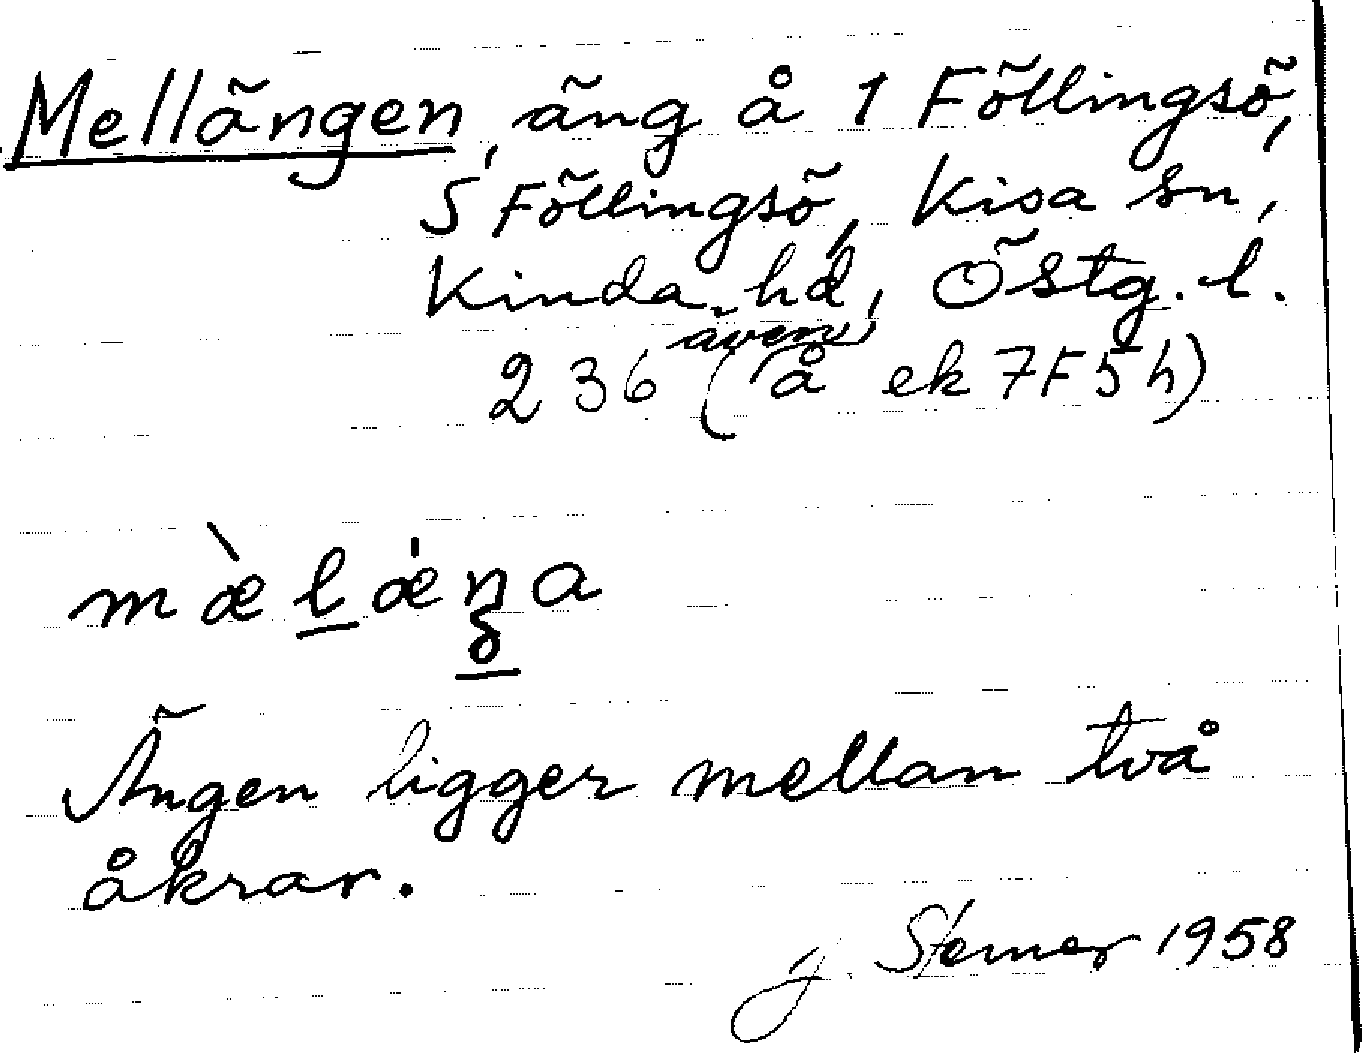 Mellängen, äng å 1 Föllingsö,
S Föllingsö, Kisa sn,
Kinda hd, Östg. l.
236 (även å ek 7F5h)
mæ̀l̲æ̍ŋa
Ängen ligger mellan två
åkrar.
J. 1958